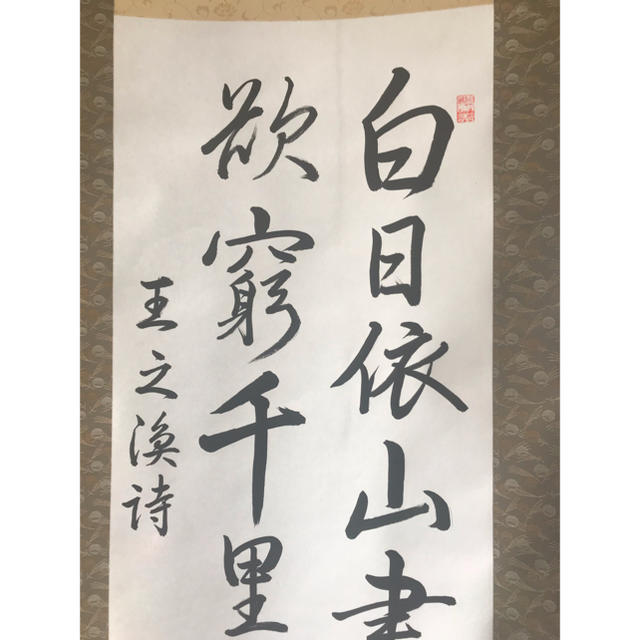 白日依山盡
欲窮千里
王之渙詩